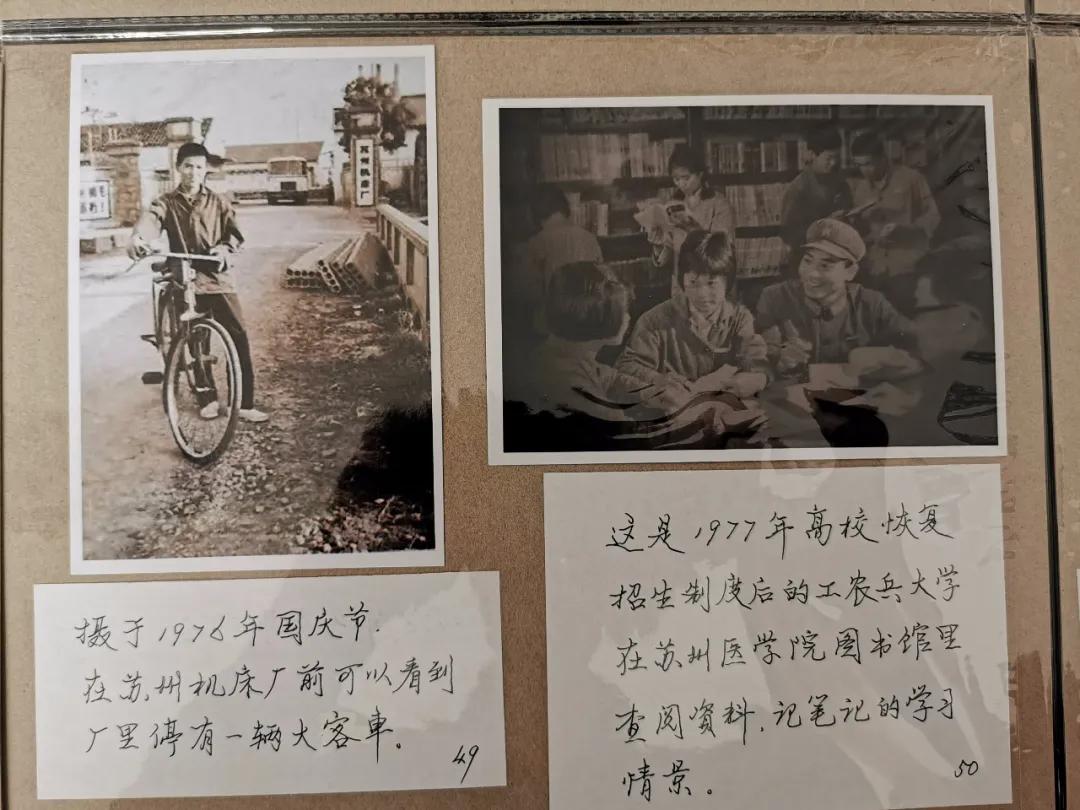 苏州机床厂
摄于1976年国庆节.
在苏州机床厂前可以看到
厂里停有一辆大客車。
49
这是1977年高校恢复
招生制度后的工农兵大学
在苏州医学院图书馆里
查阅资料,记笔记的学习
情景。
50